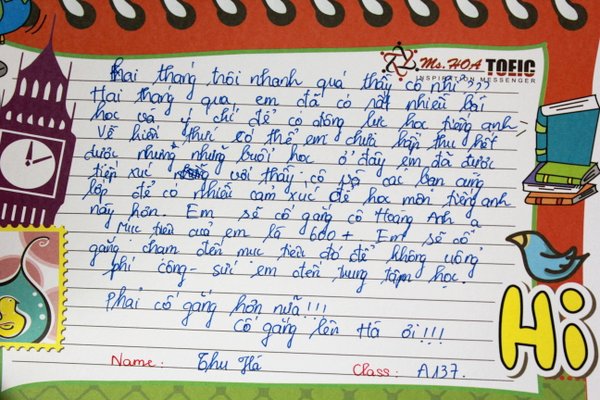 Ms.HOA TOEIC
INSPIRATION MESSENGER
Hai tháng trôi nhanh quá thầy cô nhỉ???
Hai tháng qua em đã có rất nhiều bài
học và ý chí để có động lực học tiếng anh
Về kiến thức có thể em chưa hẳn thu hết
được nhưng những buổi học ở đây em đã được
tiếp xúc với thầy, cô và các bạn cùng
lớp để có nhiều cảm xúc để học môn tiếng anh
này hơn. Em sẽ cố gắng cô Hoàng Anh ạ
Mục tiêu của em là 600+ Em sẽ cố
gắng chạm đến mục tiêu đó để không uổng
phí công sức em đến trung tâm học.
Phải cố gắng hơn nữa!!!
Cố gắng lên Hà ơi!!!
Name: Thu Hà Class: A137.
Hi